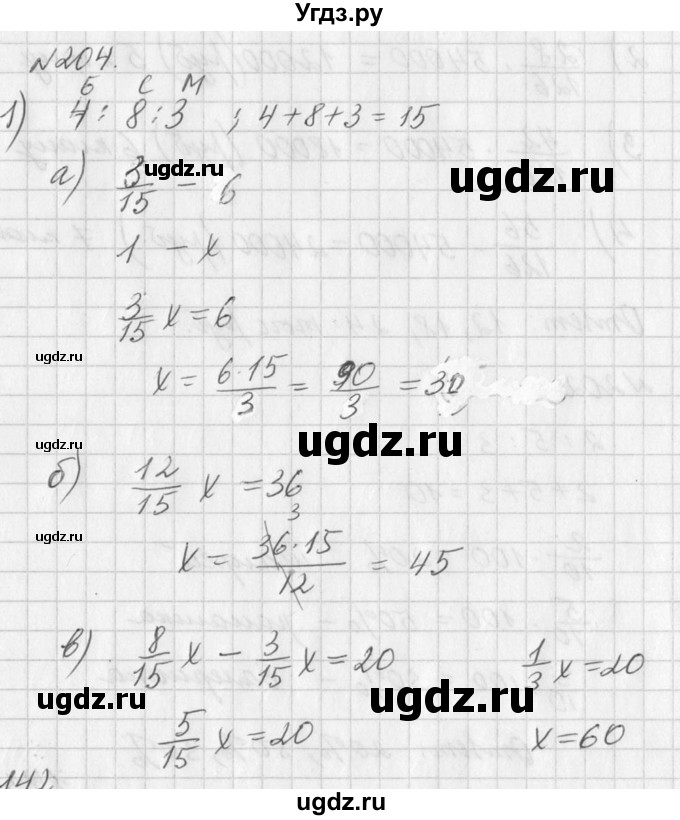 Угдз.ру
№204.
Б С М
1) 4 : 8 : 3 ; 4+8+3=15
ugdz.ru
ugdz.ru
а) 3/15 – 6
1 – x
ugdz.ru
3/15 x = 6
ugdz.ru
x = 6·15/3 = 90/3 = 30
ugdz.ru
ugdz.ru
б) 12/15 x = 36
3
ugdz.ru
x = 36·15/12 = 45
ugdz.ru
в) 8/15 x – 3/15 x = 20 1/3 x = 20
ugdz.ru
ugdz.ru
5/15 x = 20 x = 60
ugdz.ru
ugdz.ru
ugdz.ru